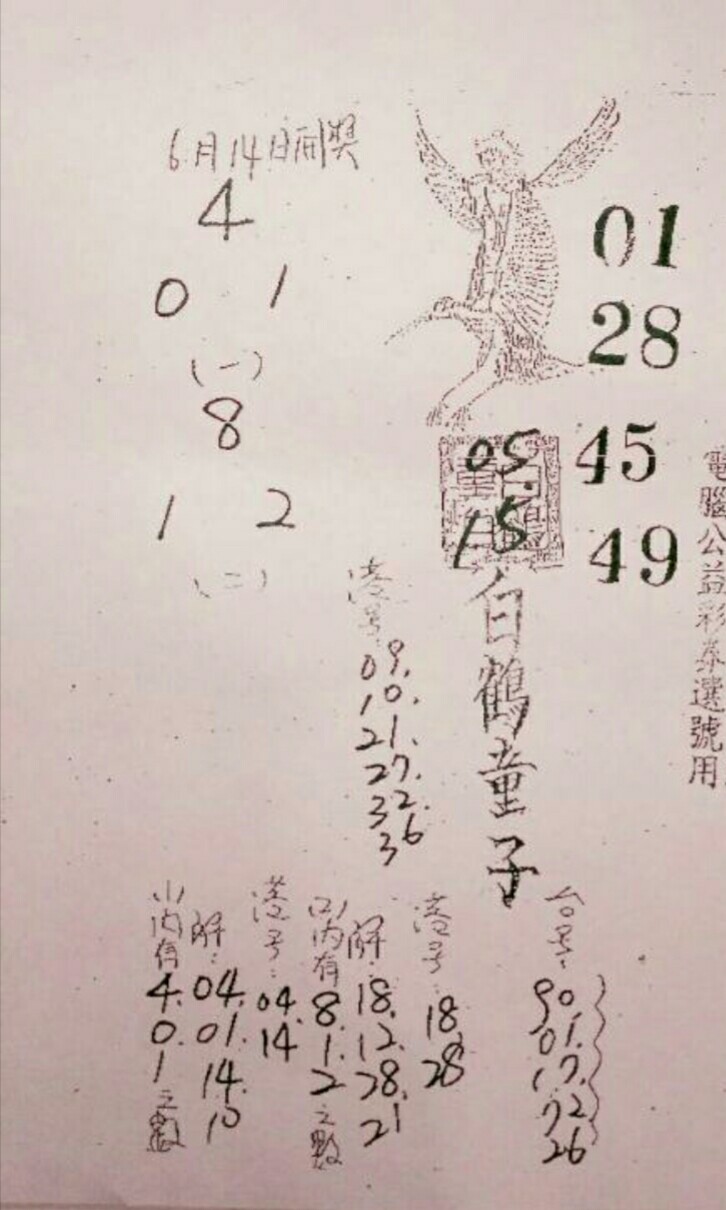 6月14日開獎
4
0 1
(一)
8
1 2
(二)
01
28
45
49
05.
15
白鶴童子
電腦公益彩券選號用
港号:
09.
10.
21.
27.
32.
36
(1)内有
4.
0.
1
之數
解:
04.
01.
14.
10
港号:
04.
14
(2)内有
8.
1.
2
之數
解:
18.
12.
28.
21
港号:
18.
28
台号:
90.
01.
17.
72
26